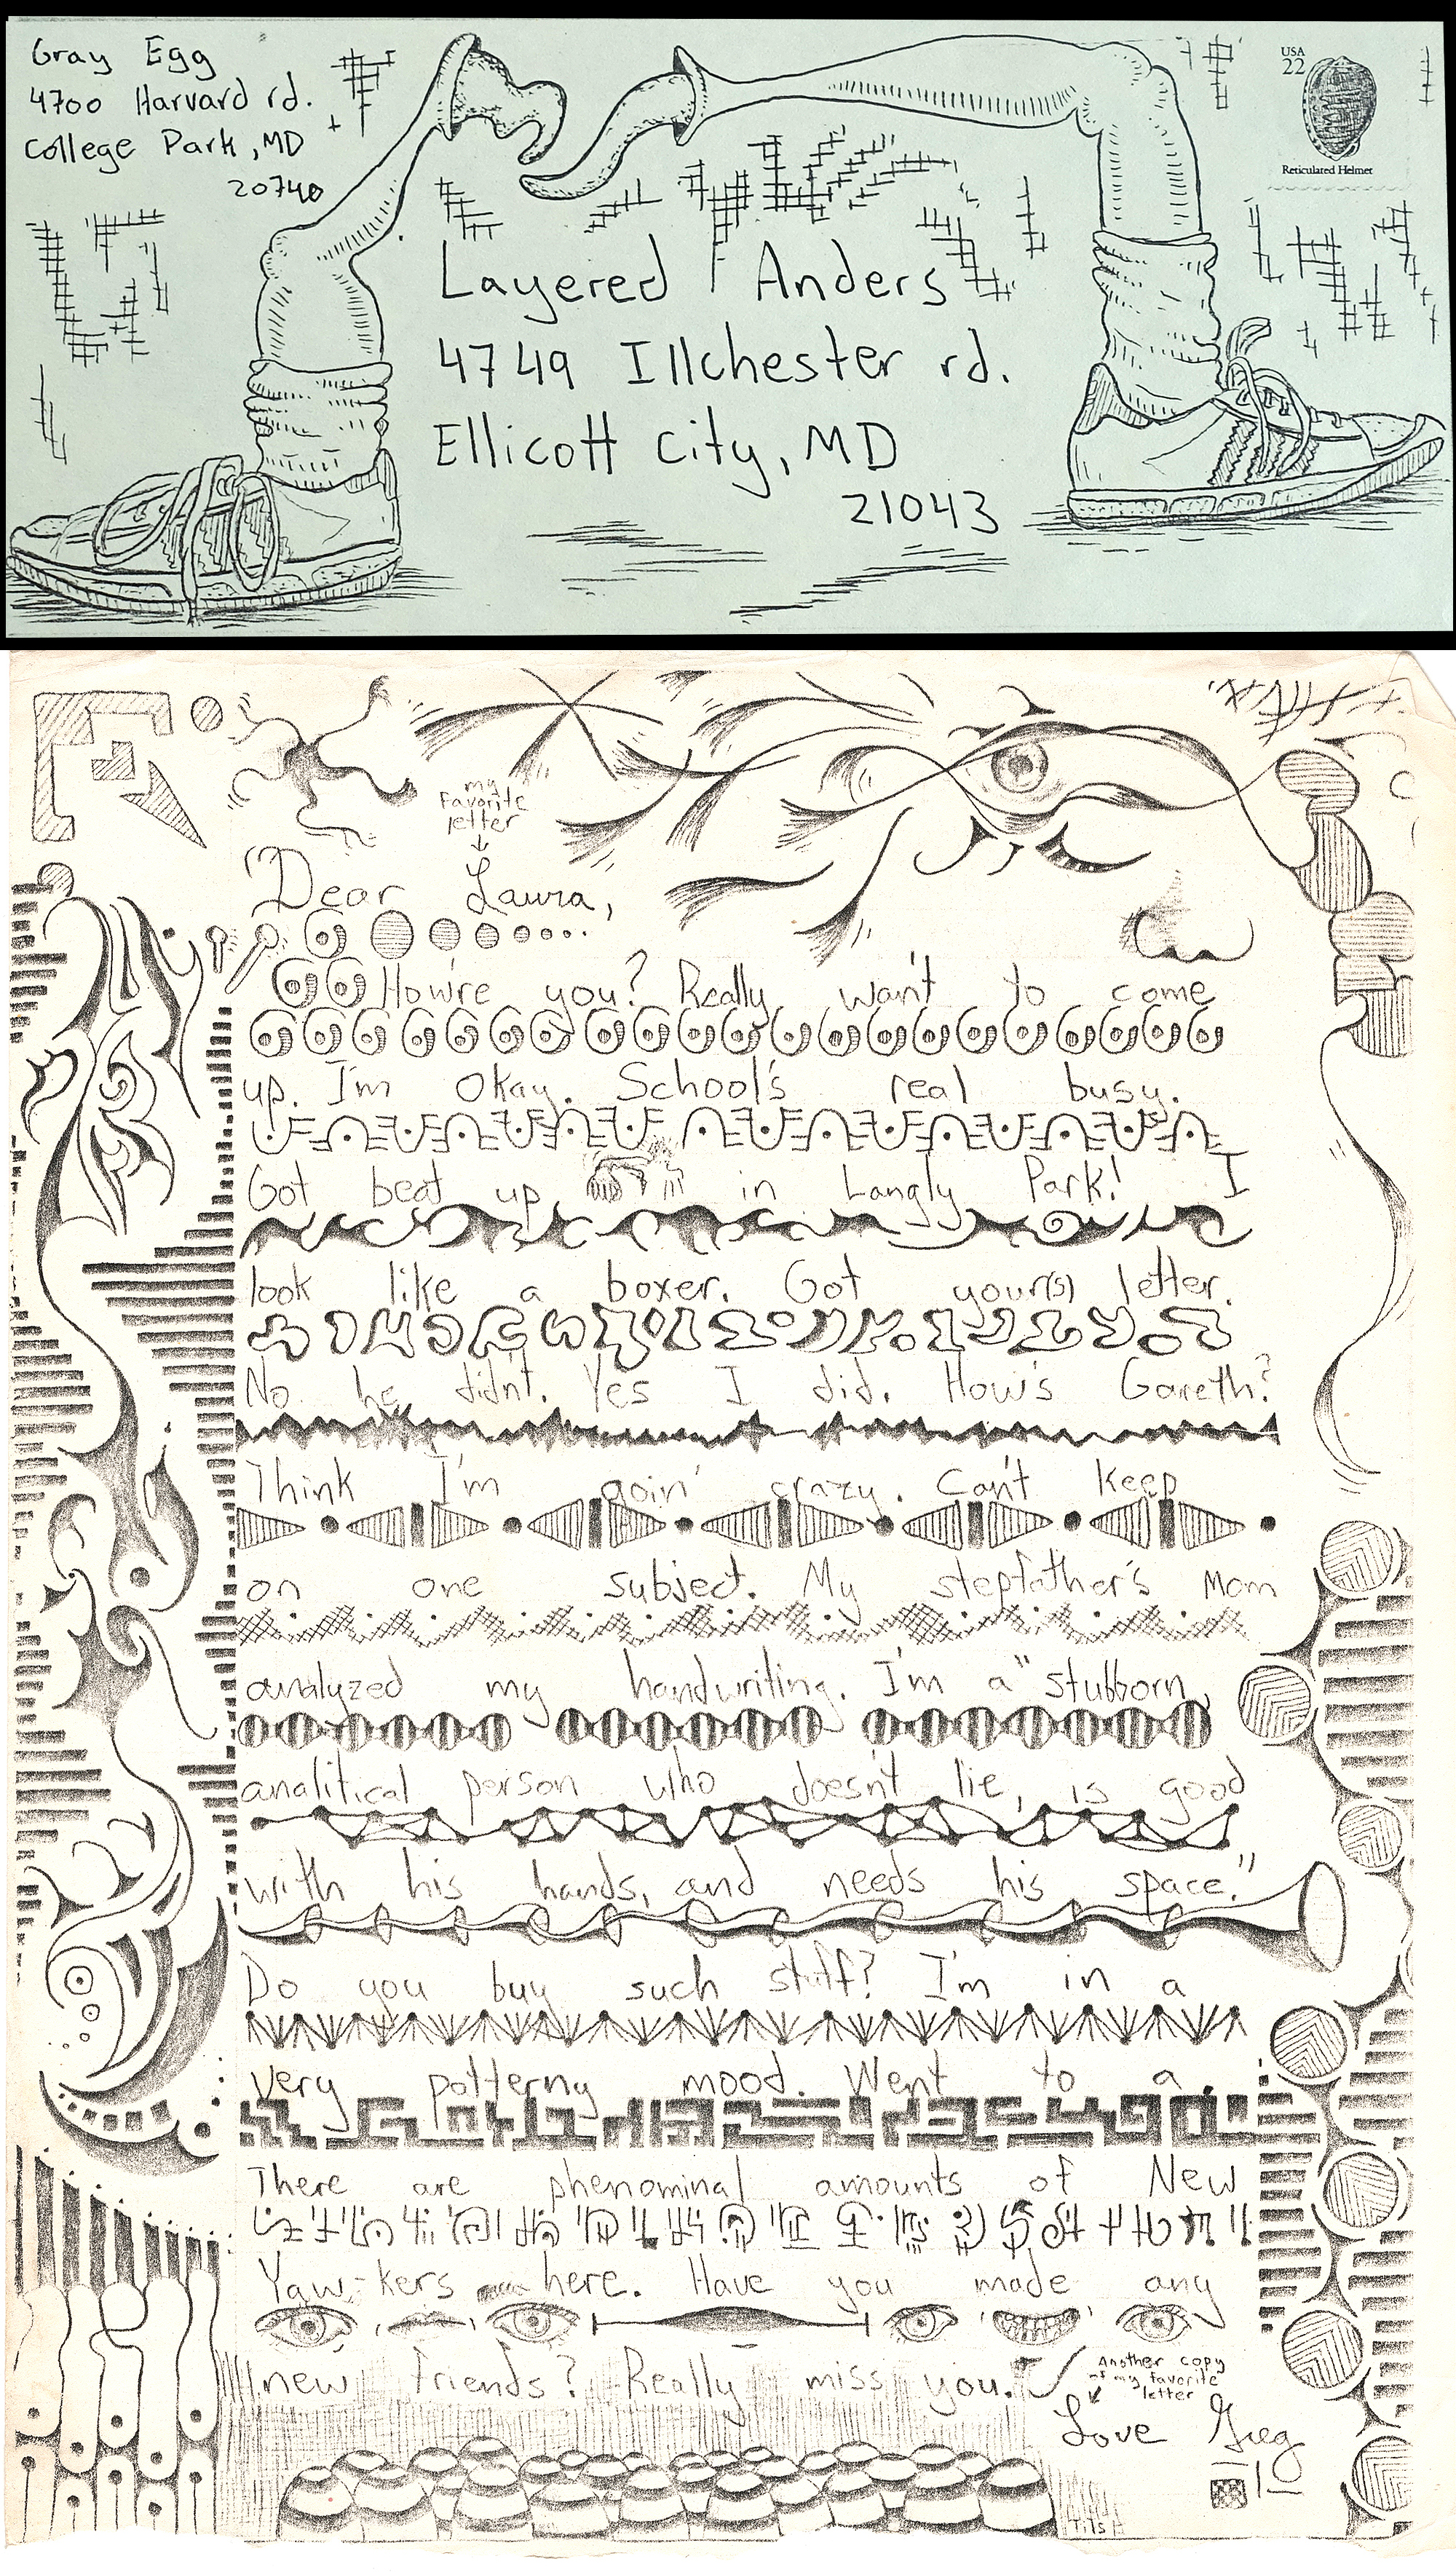 Gray Egg
4700 Harvard rd.
College Park, MD
20740
USA
22
Reticulated Helmet
Layered Anders
4749 Illchester rd.
Ellicott City, MD
21043
my
favorite
letter
Dear Laura,
How're you? Really want to come
up. I'm okay. School's real busy.
Got beat up in Langly Park! I
look like a boxer. Got your(s) letter.
No he didn't. Yes I did. How's Gareth?
Think I'm goin' crazy. Can't keep
on one subject. My stepfather's Mom
analyzed my handwriting. I'm a "stubborn,
analitical person who doesn't lie, is good
with his hands, and needs his space."
Do you buy such stuff? I'm in a
very patterny mood. Went to a.
There are phenominal amounts of New
Yaw-kers here. Have you made any
new friends? Really miss you.
Another copy
of my favorite
letter
Love Greg